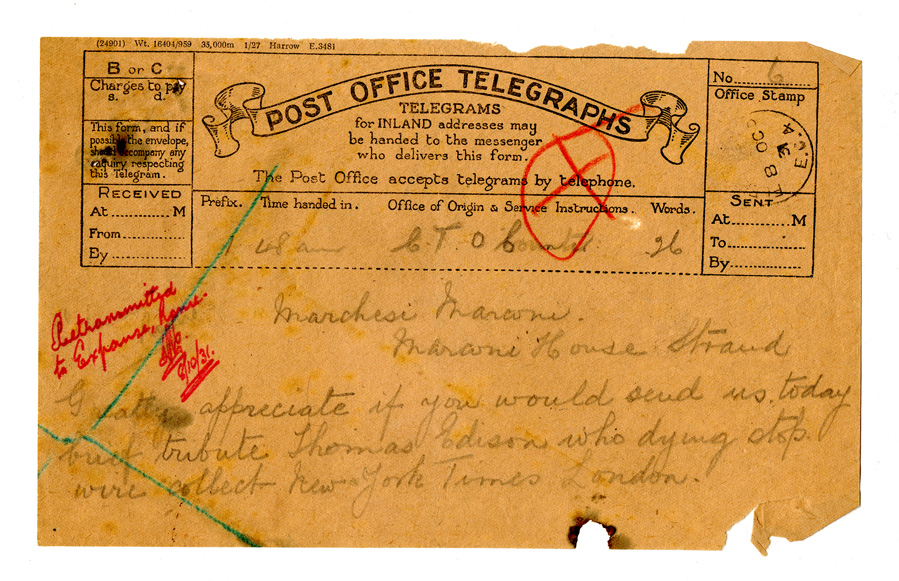 (24901) Wt. 16404/959 35,000m 1/27 Harrow E.3481
B or C
Charges to pay
s. d.
This form, and if
possible the envelope,
should accompany any
enquiry respecting
this Telegram.
RECEIVED
At M
From
By
POST OFFICE TELEGRAPHS
TELEGRAMS
for INLAND addresses may
be handed to the messenger
who delivers this form.
The Post Office accepts telegrams by telephone.
Prefix. Time handed in. Office of Origin & Service Instructions. Words.
48 am C.T.O Counter 26
No 6
Office Stamp
SENT
At M
To
By
Retransmitted
to Expanse, Rome.
8/10/31.
Marchesi Marconi.
Marconi House Strand
Greatly appreciate if you would send us today
brief tribute Thomas Edison who dying stop
wire collect New York Times London.